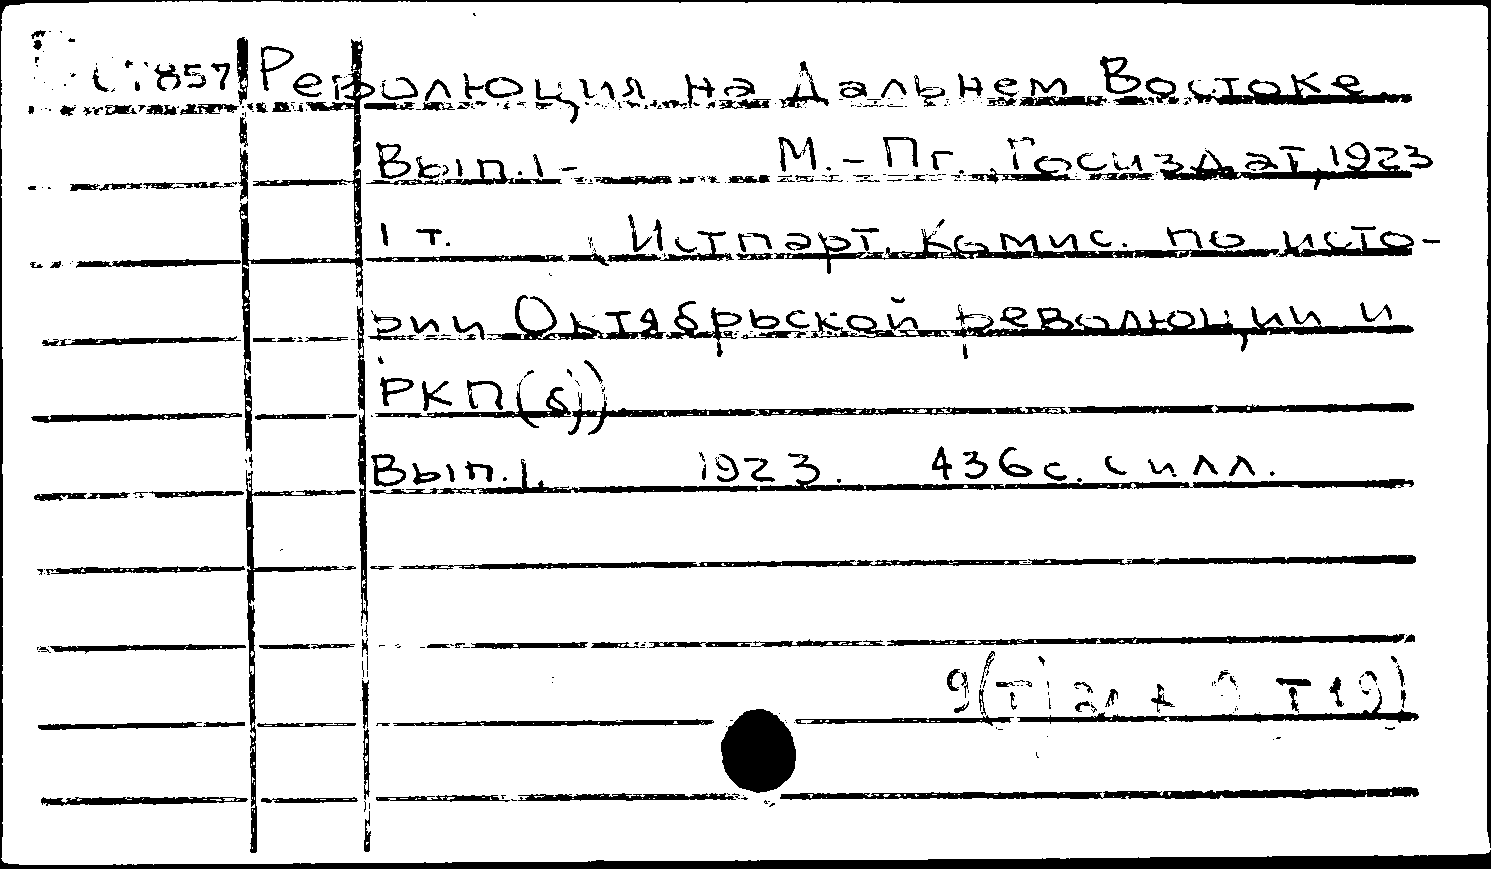 857 Революция на Дальнем Востоке
Вып.1- М.-Пг., Госиздат, 1923
1 т. (Истпарт. Комис. по исто-
рии Октябрьской революции и
РКП(б))
Вып.1. 1923. 436с. с илл.